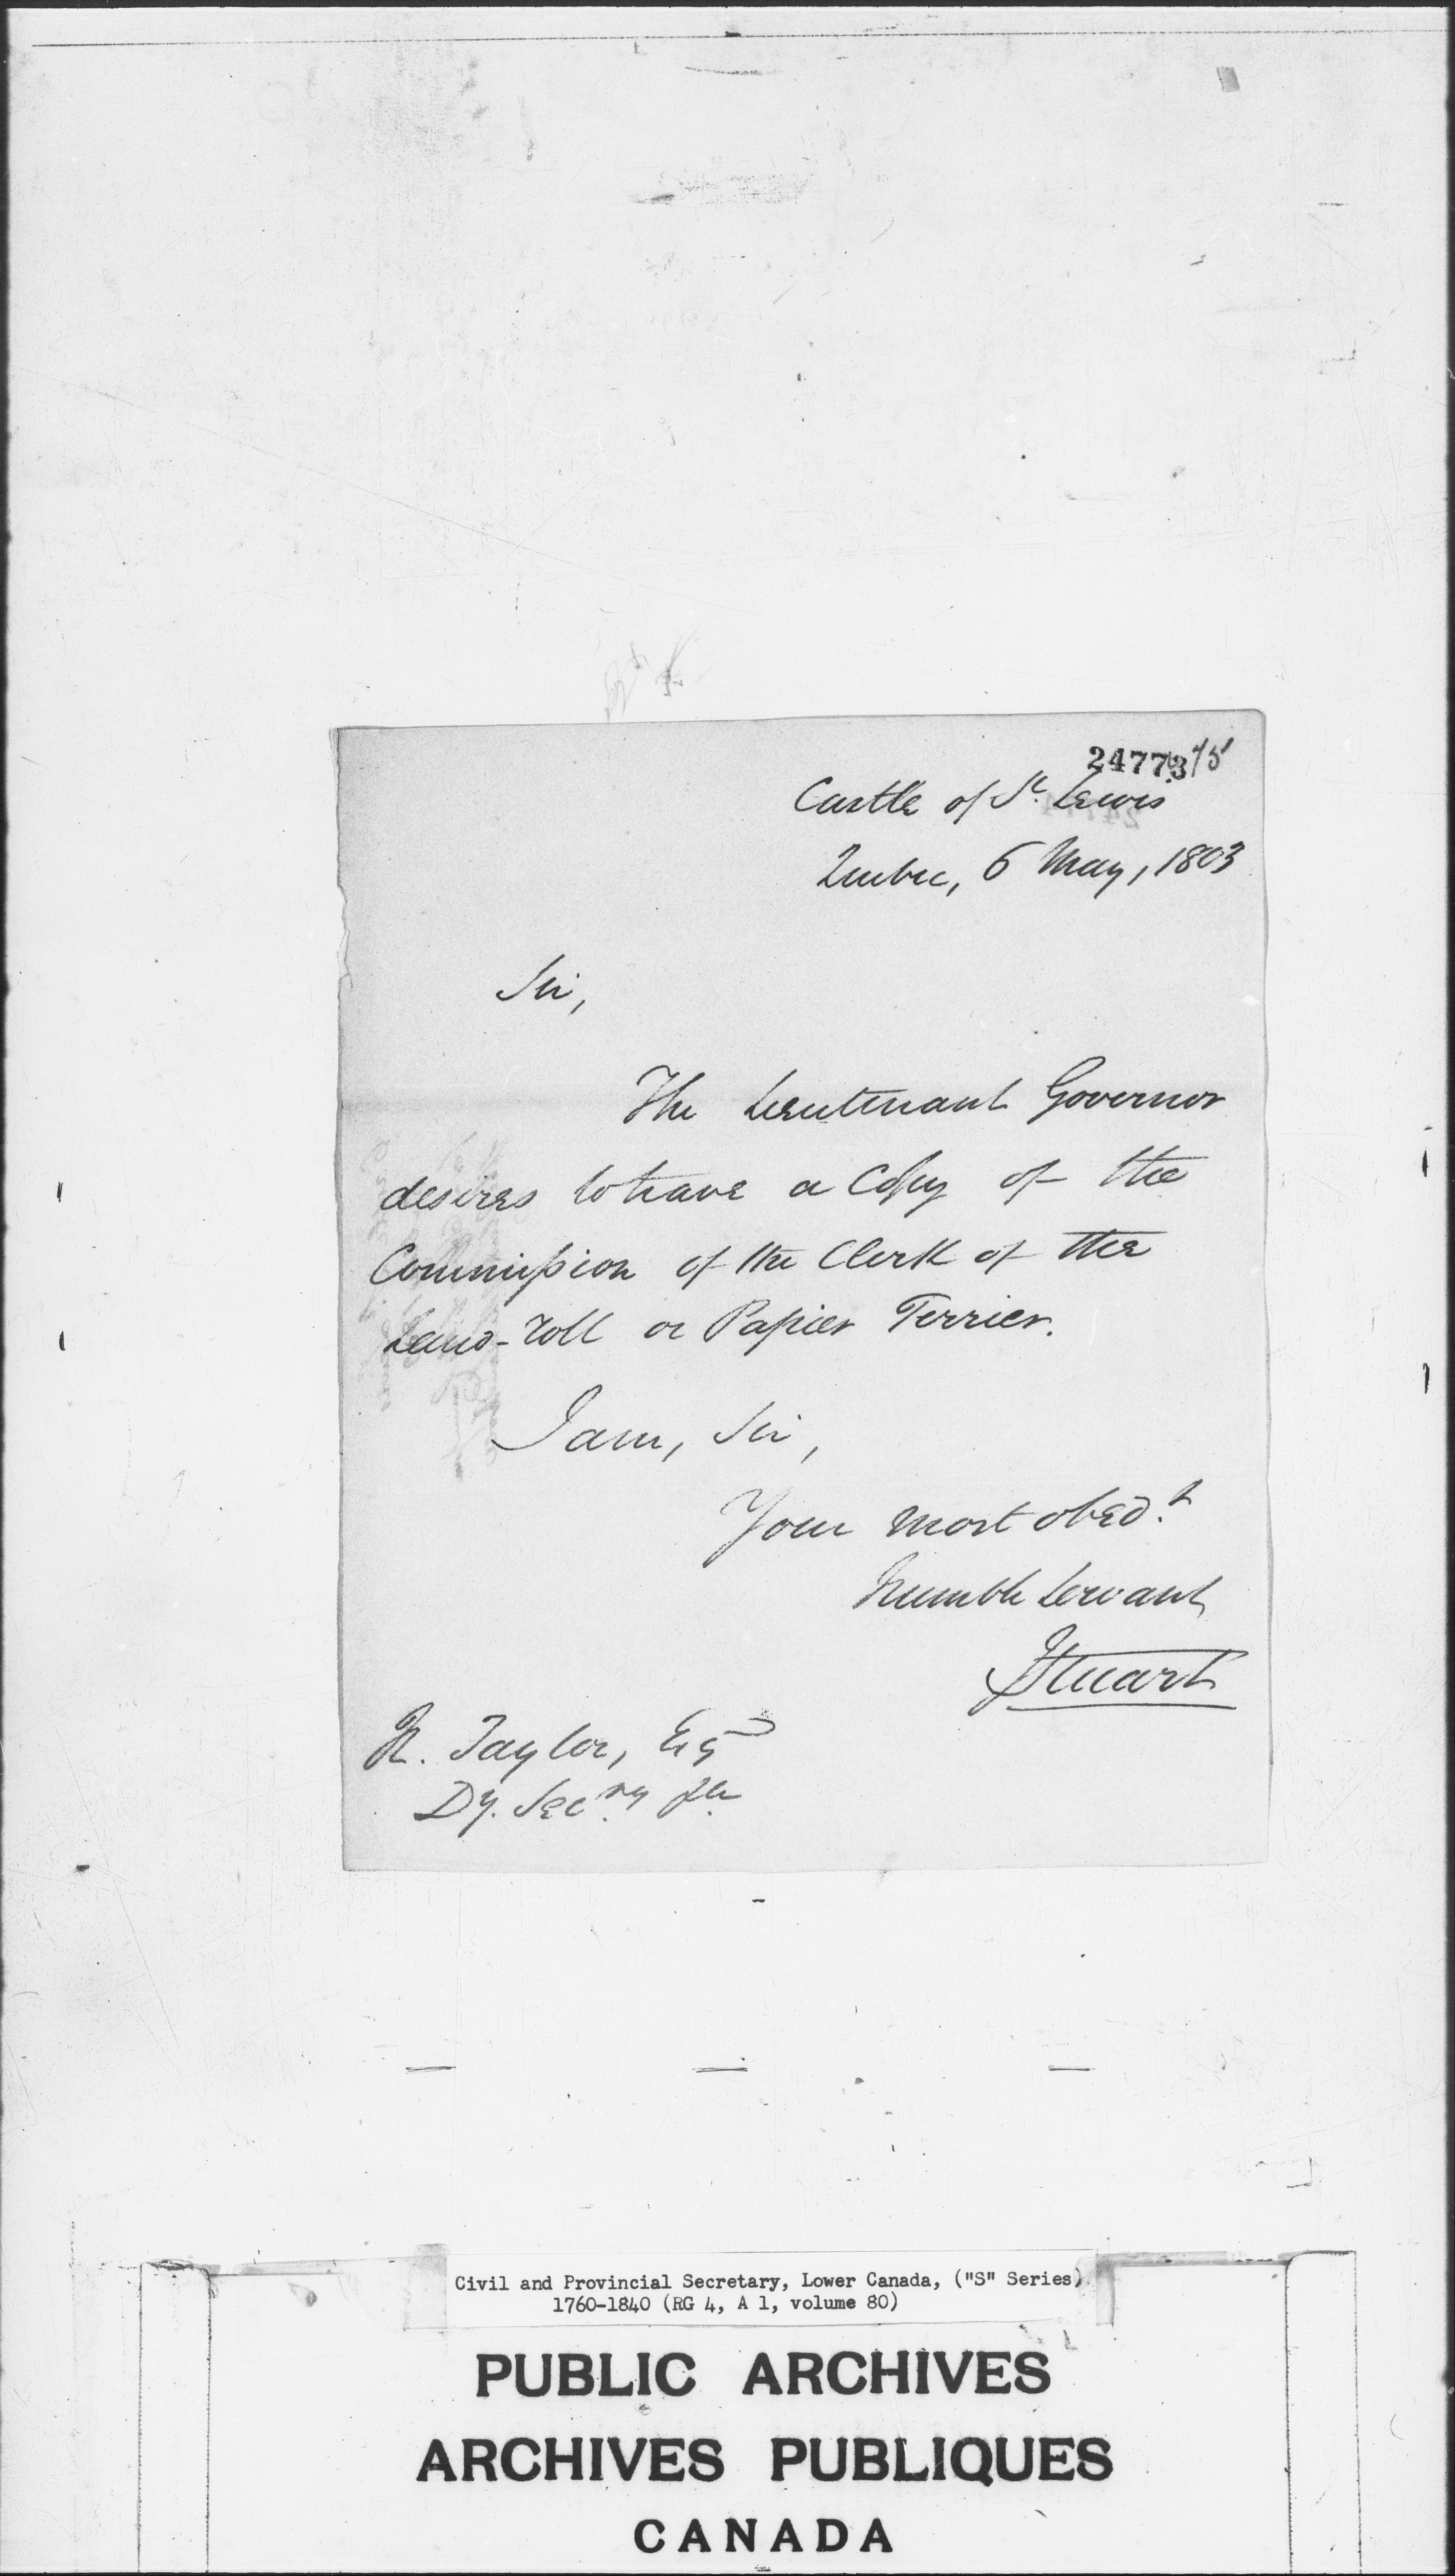 24773
Castle of St. Lewis
Quebec, 6 May, 1803
Sir,
The Lieutenant Governor
desires to have a Copy of the
Commission of the Clerk of the
Land-roll or Papier Terrier.
I am, Sir,
Your most obedt.
humble Servant,
JStuart
N. Taylor, Esq
Dy. Secry &c
Civil and Provincial Secretary, Lower Canada, ("S" Series)
1760-1840 (RG 4, A 1, volume 80)
PUBLIC ARCHIVES
ARCHIVES PUBLIQUES
CANADA